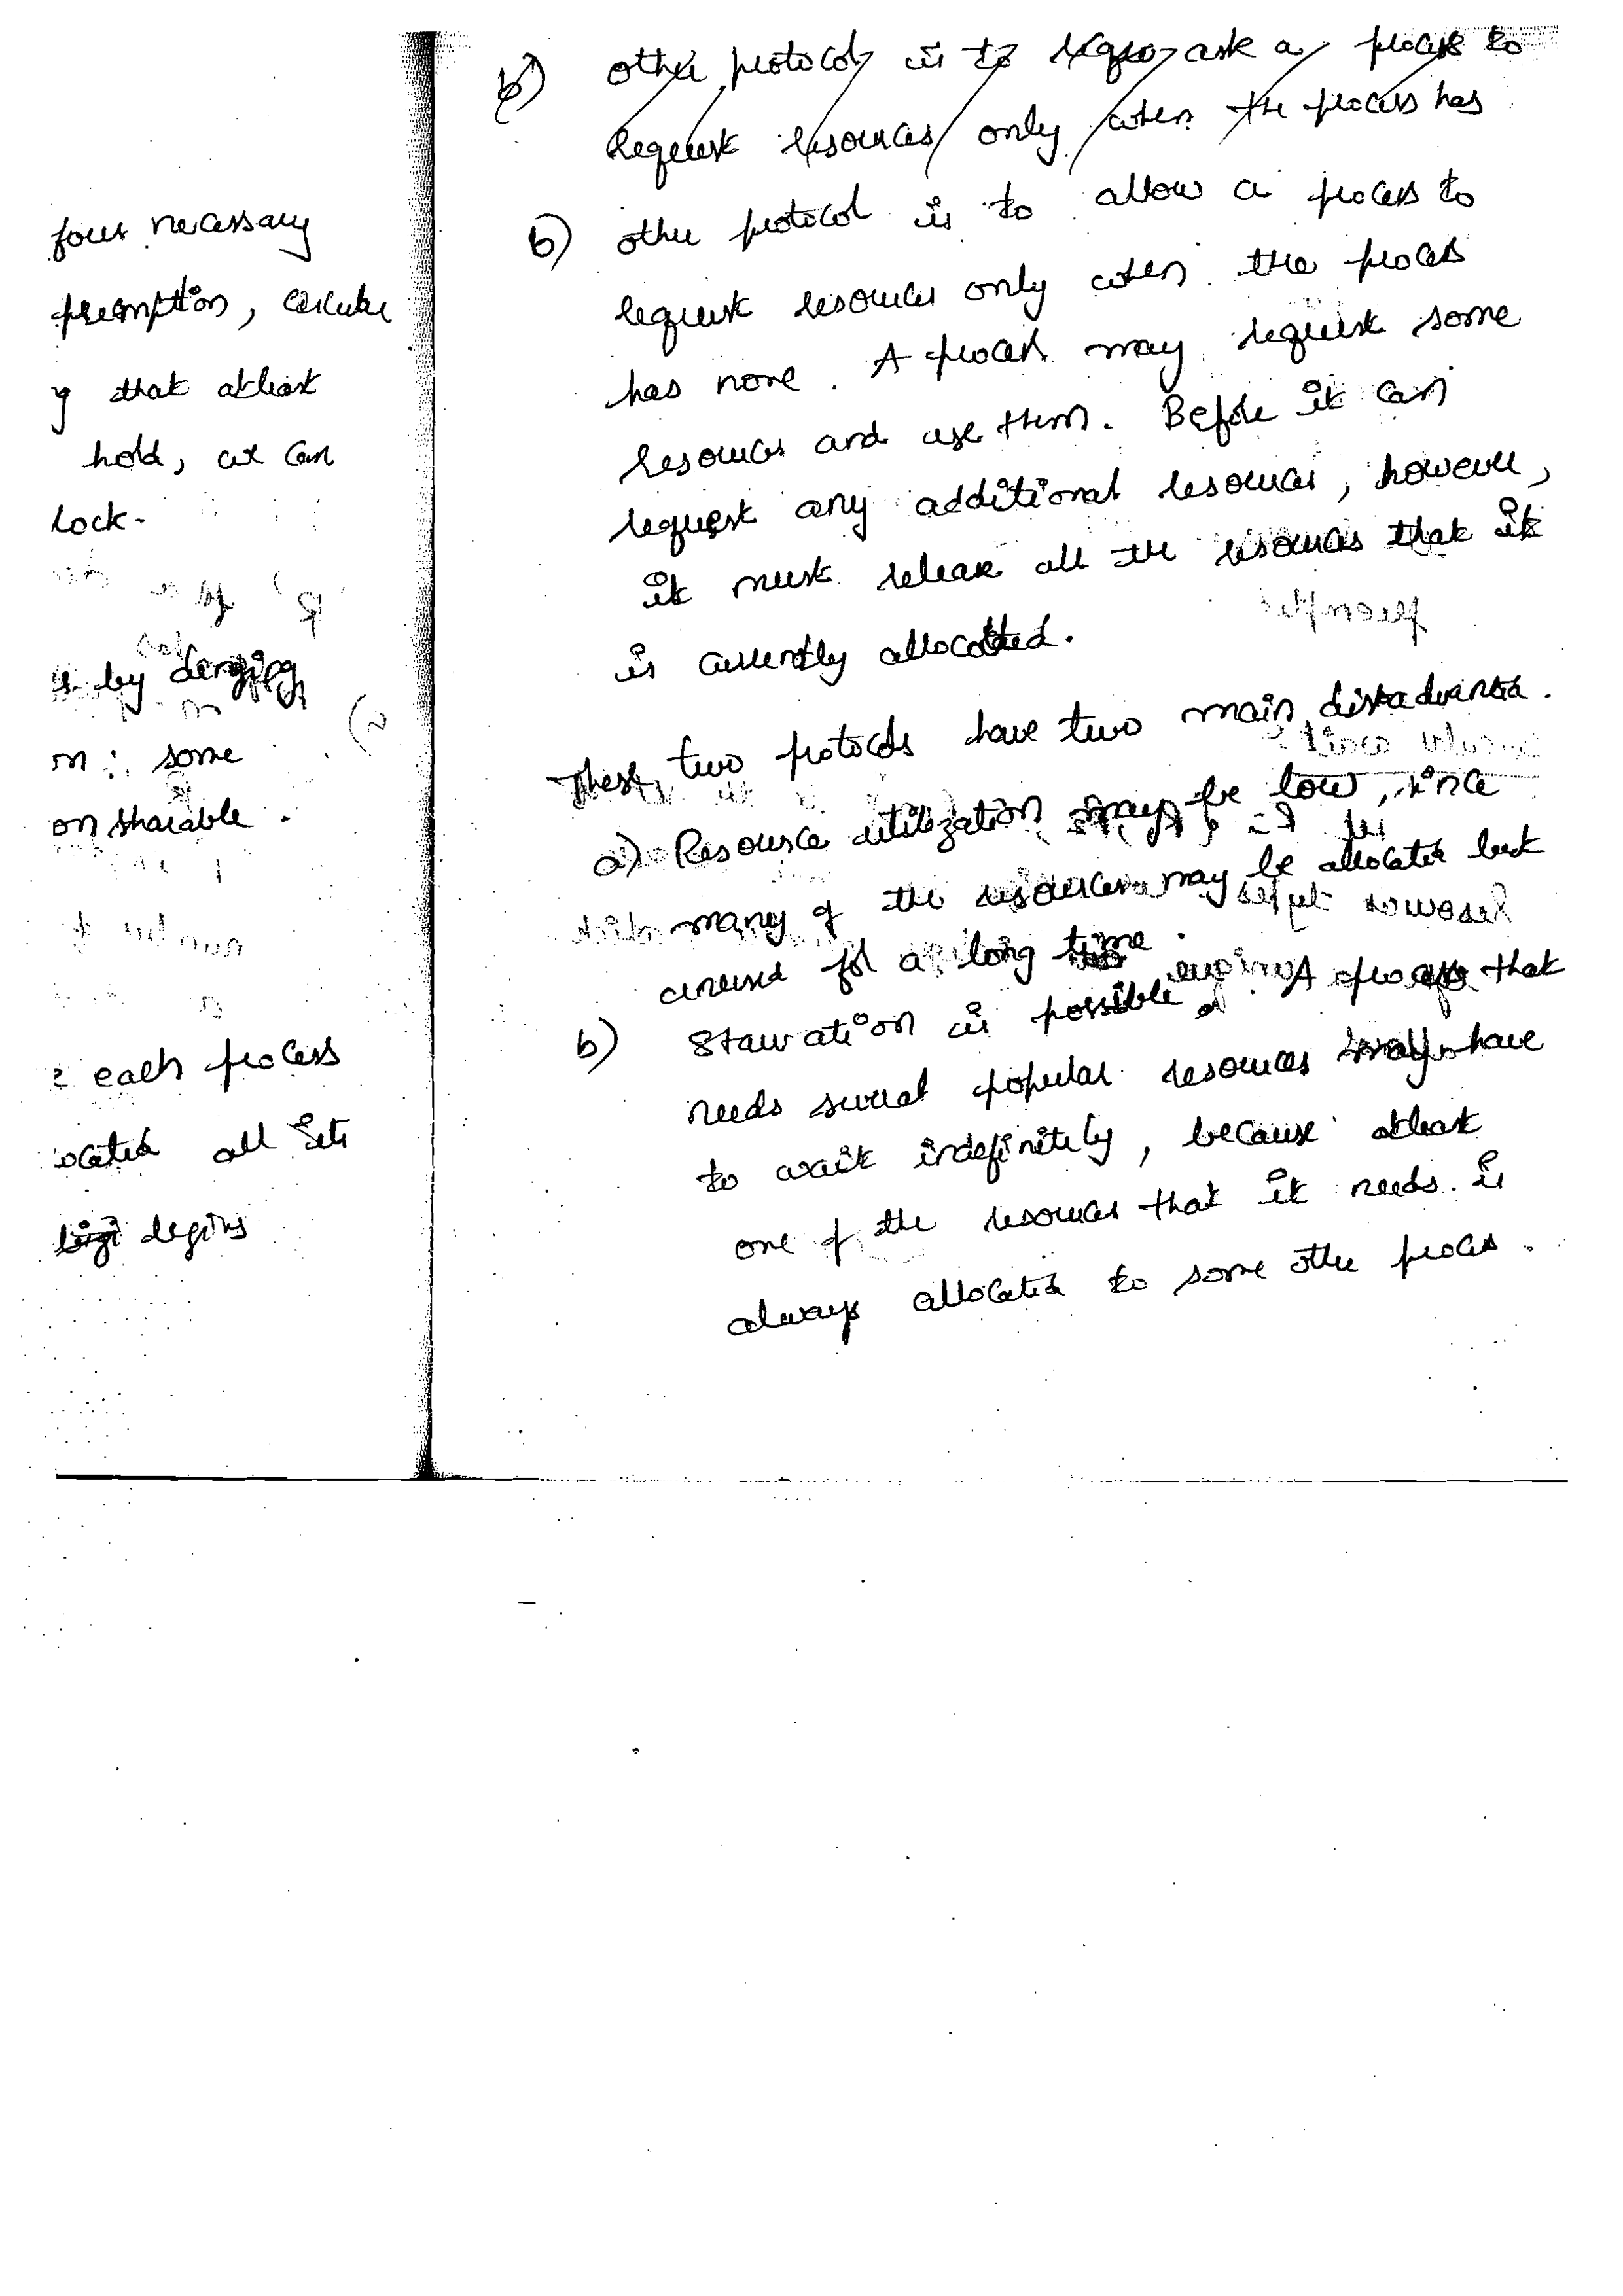 four necessary
preemption, circular
g that atleast
hold, we can
lock.
by denying
on : some
on sharable .
each process
ocated all its
begins
b) other protocol is to requ ask a process to
request resources only when the process has
b) other protocol is to allow a process to
request resources only when the process
has none . A process may request some
resources and use them. Before it can
request any additional resources, however,
it must release all the resources that it
is currently allocated.
These two protocols have two main disadvanta.
a) Resource utilization may be low, since
many of the resources may be allocated but
unused for a long time .
b) Starvation is possible . A process that
needs several popular resources may have
to wait indefinitely, because atleast
one of the resources that it needs is
always allocated to some other process .